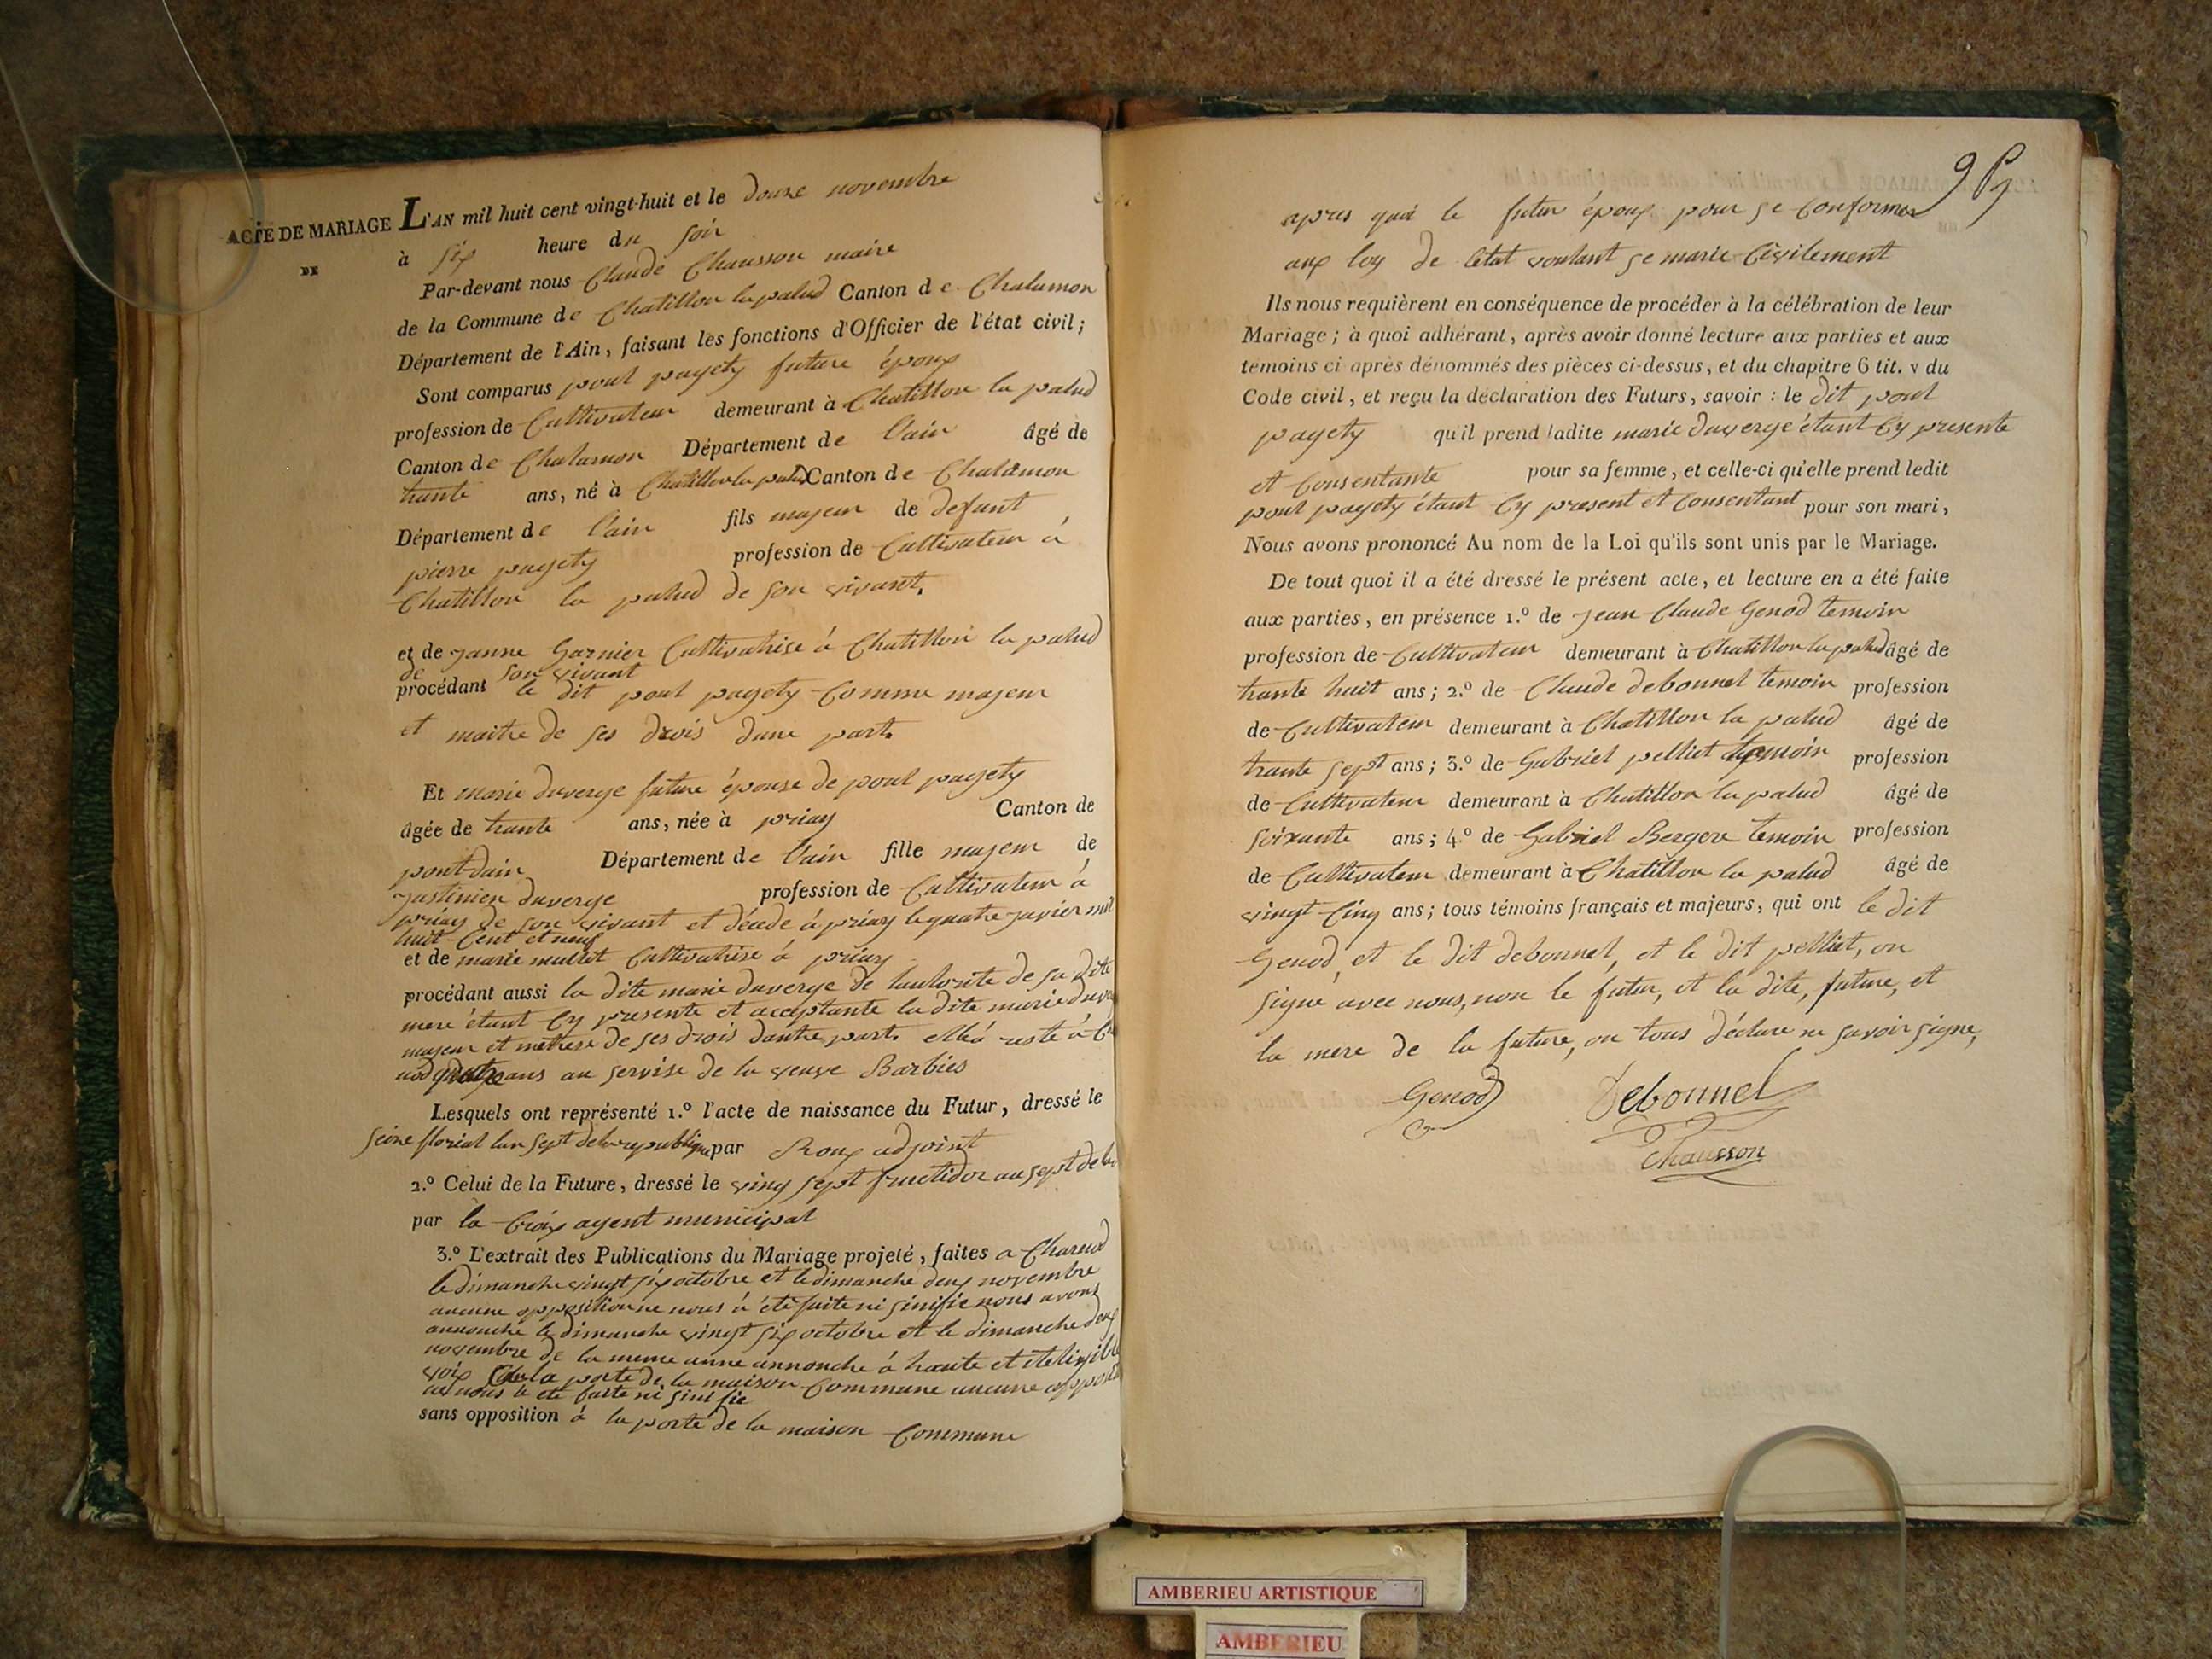 ACTE DE MARIAGE
DE
L'AN mil huit cent vingt-huit et le douze novembre
à six heure du soir
Par-devant nous Claude Chausson maire
de la Commune de Chatillon la palud Canton de Chalamon
Département de l'Ain, faisant les fonctions d'Officier de l'état civil;
Sont comparus poul payety future époux
profession de Cultivateur demeurant à Chatillon la palud
Canton de Chalamon Département de lain âgé de
trante ans, né à Chatillon la palud Canton de Chalamon
Département de lain fils majeur de defunt
pierre payety profession de Cultivateur à
Chatillon la palud de son vivant,
et de janne Garnier Cultivatrise à Chatillon la palud
de son vivant
procédant le dit poul payety Comme majeur
et maitre de ses drois dune part,
Et marie duverge future épouse de poul payety
âgée de trante ans, née à priay Canton de
pont-dain Département de lain fille majeur de
justinien duverge profession de Cultivateur à
priay de son vivant et décede à priay le quatre javier mil
huit Cent et neuf
et de marie mullet Cultivatrise à priay
procédant aussi la dite marie duverge de lautorite de sa dite
mere étant Cy presente et acceptante la dite marie
majeur et metresse de ses drois dautre part. ellea resté à
ans au servise de la veuve Barbies
Lesquels ont représenté 1.º l'acte de naissance du Futur, dressé le
seise florial lan sept de la republique par Roux adjoint
2.º Celui de la Future, dressé le ving sept fructidor an sept de la
par la Croix agent municipal
3.º L'extrait des Publications du Mariage projeté, faites a
le dimanche vingt six octobre et le dimanche deux novembre
aucune opposition ne nous à été faite ni sinifie nous avons
annonche le dimanche vingt six octobre et le dimanche deux
novembre de la meme anne annonche à haute et
voix a la porte de la maison Commune aucune
ne nous a été faite ni sinifie
sans opposition à la porte de la maison Commune
apres quoi le futur époux pour se Conformer
aux loy de letat voulant se marie Civilement
Ils nous requièrent en conséquence de procéder à la célébration de leur
Mariage; à quoi adhérant, après avoir donné lecture aux parties et aux
témoins ci après dénommés des pièces ci-dessus, et du chapitre 6 tit. v du
Code civil, et reçu la déclaration des Futurs, savoir: le dit poul
payety qu'il prend ladite marie duverge étant Cy presente
et Consentante pour sa femme, et celle-ci qu'elle prend ledit
poul payety étant Cy present et Consentant pour son mari,
Nous avons prononcé Au nom de la Loi qu'ils sont unis par le Mariage.
De tout quoi il a été dressé le présent acte, et lecture en a été faite
aux parties, en présence 1.º de jean Claude Genod temoin
profession de Cultivateur demeurant à Chatillon la palud âgé de
trante huit ans; 2.º de Claude debonnel temoin profession
de Cultivateur demeurant à Chatillon la palud âgé de
trante sept ans; 3.º de Gabriel pelliet temoin profession
de Cultivateur demeurant à Chatillon la palud âgé de
soixante ans; 4.º de Gabriel Bergere temoin profession
de Cultivateur demeurant à Chatillon la palud âgé de
vingt Cinq ans; tous témoins français et majeurs, qui ont le dit
Genod, et le dit debonnel, et le dit pelliet, on
signé avec nous, non le futur, et la dite, future, et
la mere de la future, on tous déclare ne savoir signe,
Genod Debonnel
Chausson
AMBERIEU ARTISTIQUE
AMBERIEU